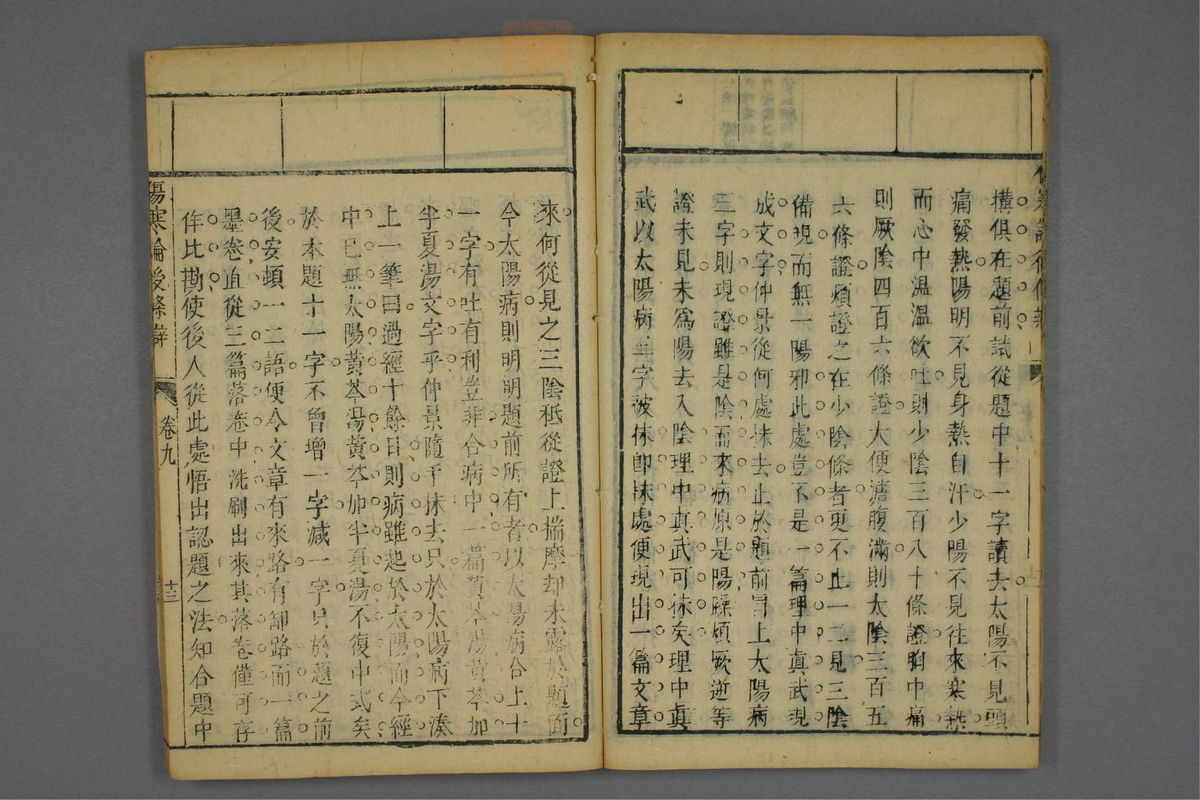 構俱在題前試從題中十一字讀去太陽不見頭
痛發熱陽明不見身熱自汗少陽不見往來寒熱
而心中溫溫欲吐則少陰三百八十條證胸中痛
則厥陰四百六條證大便溏腹滿則太陰三百五
六條證煩證之在少陰條者更不止一二見三陰
備現而無一陽邪此處豈不是一篇理中真武現
成文字仲景從何處抹去止於題前冒上太陽病
三字則現證雖是陰而來病原是陽躁煩厥逆等
證未見未為陽去入陰理中真武可抹矣理中眞
武以太陽病三字被抹即抹處便現出一篇文章
來何從見之三陰秪從證上揣摩却未露於題面
今太陽病則明明題前所有者以太陽病合上十
一字有吐有利豈非合病中一篇黃芩湯黃芩加
半夏湯文字乎仲景隨手抹去只於太陽病下湊
上一筆曰過經十餘日則病雖起於太陽而今經
中已無太陽黃芩湯黃芩加半夏湯不復中式矣
於本題十一字不曾增一字減一字只於題之前
後安頓一二語便令文章有來路有卸路而一篇
墨卷直從三篇落卷中洗刷出來其落卷僅可存
作比勘使後人從此處悟出認題之法知合題中
傷寒論後條辯
卷九
十三